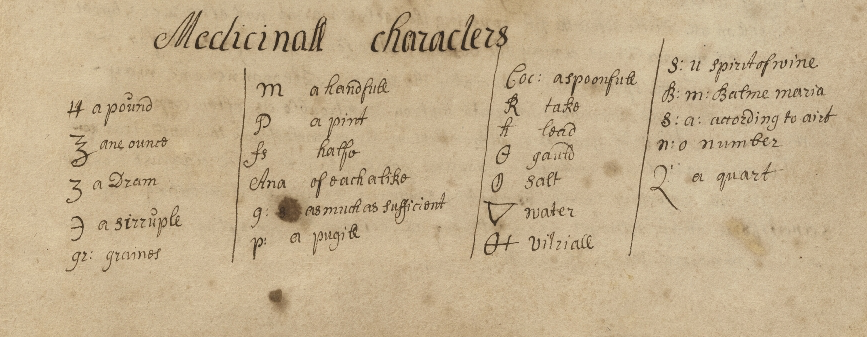 Medicinall characters
℔ a pound
℥ ane ounce
ʒ a Dram
℈ a sirruple
gr: graines
M a handfull
P a pint
fs halfe
Ana of each alike
q: as much as sufficient
p: a pugill
Coc: a spoonfull
℞ take
♄ lead
gauld
salt
▽ water
vitriall
S: v spirit of wine
B: m: Balme maria
S: a: according to airt
n:o number
Q a quart